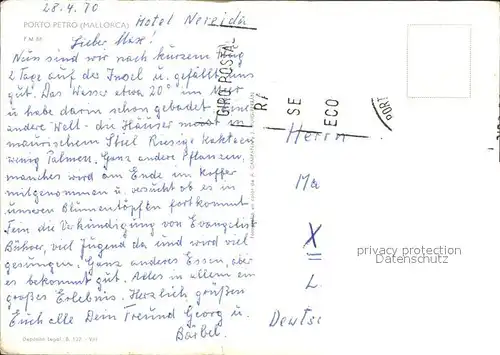 28.4.70
Hotel Nereida
PORTO PETRO (MALLORCA)
Lieber Max!
Nun sind wir nach kurzem Flug
2 Tage auf der Insel u. gefällt uns
gut. Das Wasser etwa 20° im Meer
u habe darin schon gebadet. Eine
andere Welt - die Häuser meist im
maurischem Stiel Riesige Kakteen
wenig Palmen. Ganz andere Pflanzen,
manches wird am Ende im Koffer
mitgenommen u. versucht ob es in
unseren Blumentöpfen fortkommt
Fein die Verkündigung von Evangelist
Bührer, viel Jugend da und wird viel
gesungen. Ganz anderes Essen, aber
es bekommt gut. Alles in allem ein
großes Erlebnis. Herzlich grüßen
Euch alle Dein Freund Georg u.
Bärbel.
GIRO POSTAL
RA
SE
ECO
PORT
Herrn
Ma
X
L
Deutsc
privacy protection
Datenschutz